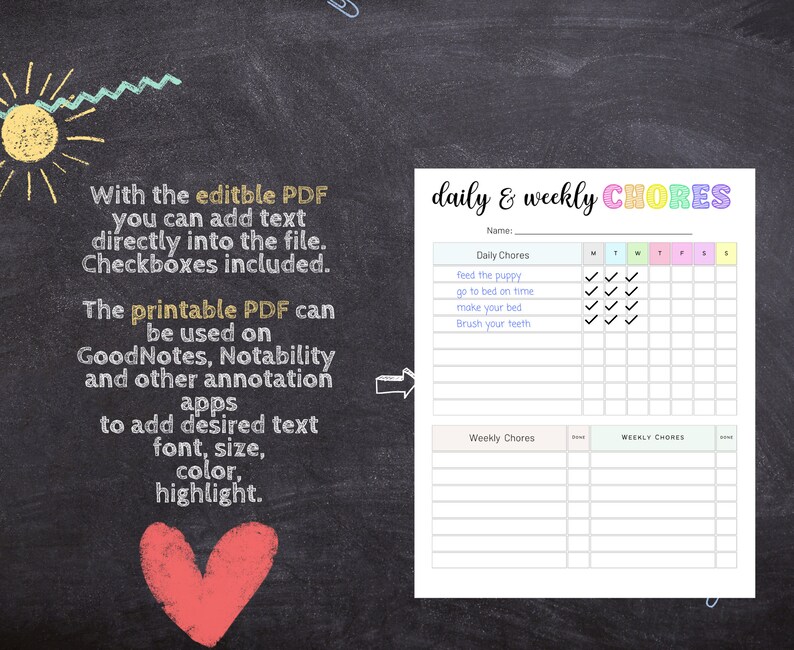 With the editble PDF
you can add text
directly into the file.
Checkboxes included.
The printable PDF can
be used on
GoodNotes, Notability
and other annotation
apps
to add desired text
font, size,
color,
highlight.
daily & weekly CHORES
Name:
Daily Chores M T W T F S S
feed the puppy
go to bed on time
make your bed
Brush your teeth
Weekly Chores Done Weekly Chores Done